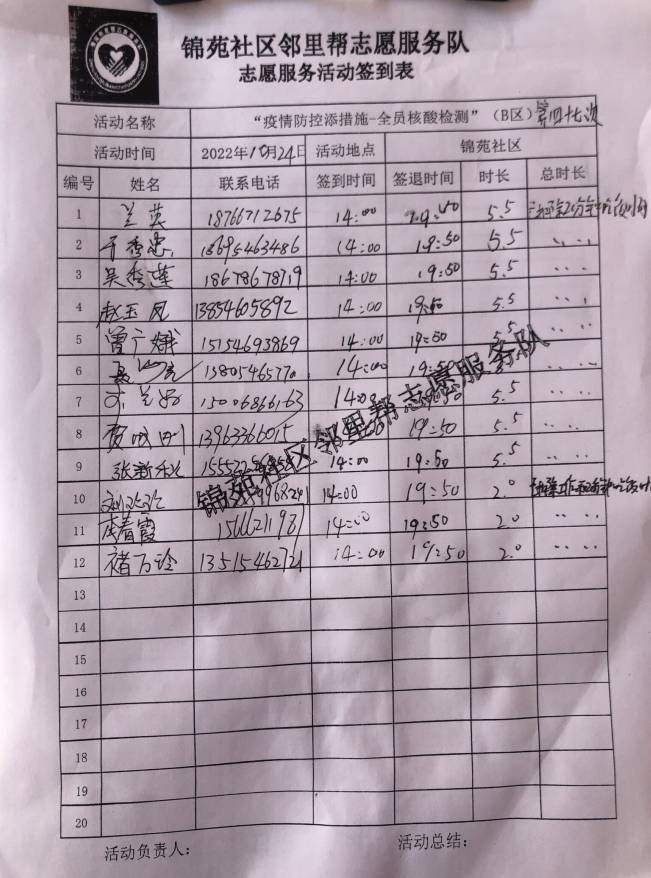 锦苑社区邻里帮志愿服务队
志愿服务活动签到表
活动名称 “疫情防控添措施-全员核酸检测”（B区）第四十七次
活动时间 2022年10月24日 活动地点 锦苑社区
编号 姓名 联系电话 签到时间 签退时间 时长 总时长
1 兰英 18766712675 14:00 5.5
2 于秀忠 18695463486 14:00 19:50 5.5
3 吴秀莲 18678678719 14:00 19:50 5.5
4 赵玉凤 13854605892 14:00 19:50 5.5
5 曾广娥 15154693869 14:00 19:50 5.5
6 14:00 19:50
7 15006866163 14:00 5.5
8 13963366015 19:50 5.5
9 张新 14:00 19:50 5.5
10 14:00 19:50 2.0
11 春霞 14:00 19:50 2.0
12 褚万玲 13515462721 14:00 19:50 2.0
13
14
15
16
17
18
19
20
锦苑社区邻里帮志愿服务队
活动负责人： 活动总结：